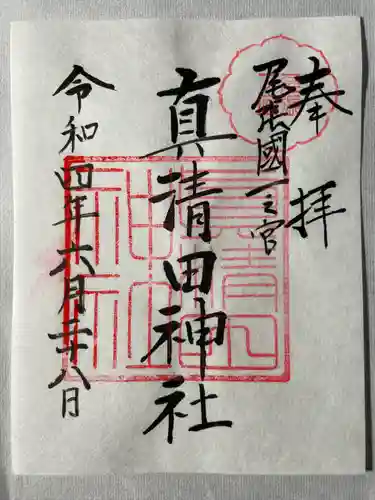 奉拝
尾張國一之宮
真清田神社
令和四年六月二十八日
真清田
神社